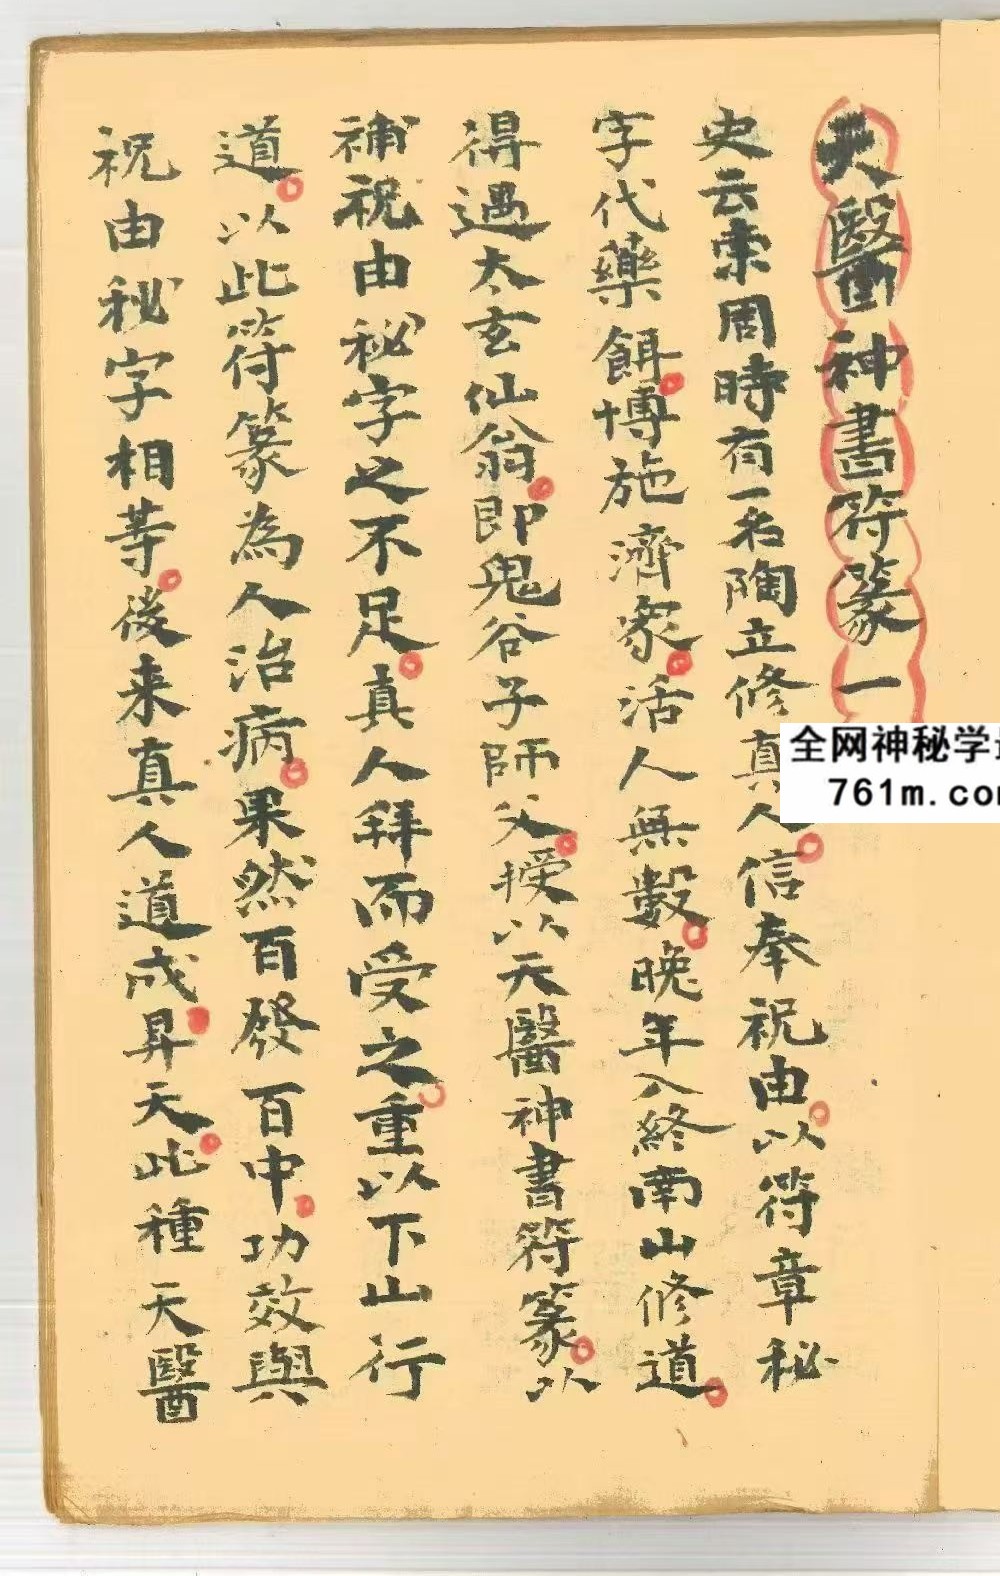 天醫神書符篆一
史云東周時有一名陶立修真人信奉祝由以符章秘
字代藥餌博施濟衆活人無數晚年入終南山修道
得遇太玄仙翁即鬼谷子師父授以天醫神書符篆以
補祝由秘字之不足真人拜而受之重以下山行
道以此符篆為人治病果然百發百中功效與
祝由秘字相等後来真人道成昇天此種天醫
全网神秘学
761m.com